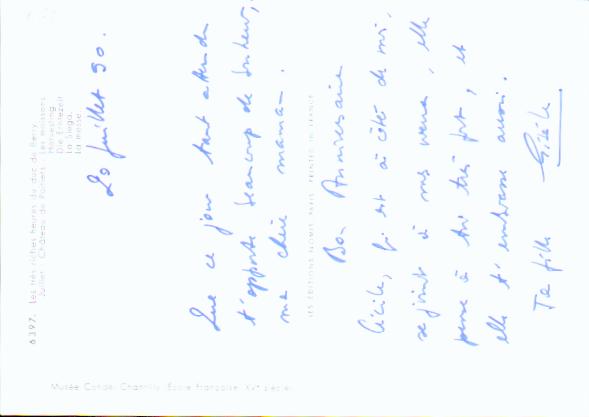 6397. Les très riches heures du duc de Berry
Juillet : Château de Poitiers. Les moissons
Harvesting
Die Erntezeit
La Siega
La messe
29 Juillet 90.
Que ce jour tant attendu
t'apporte beaucoup de bonheur,
ma chère maman.
LES ÉDITIONS NOMIS PARIS PRINTED IN FRANCE
Bon Anniversaire
Cécile, qui est à côté de moi,
se joint à mes vœux, elle
pense à toi très fort, et
elle t'embrasse aussi.
Ta fille Gisèle
Musée Condé, Chantilly (École Française, XVe siècle)